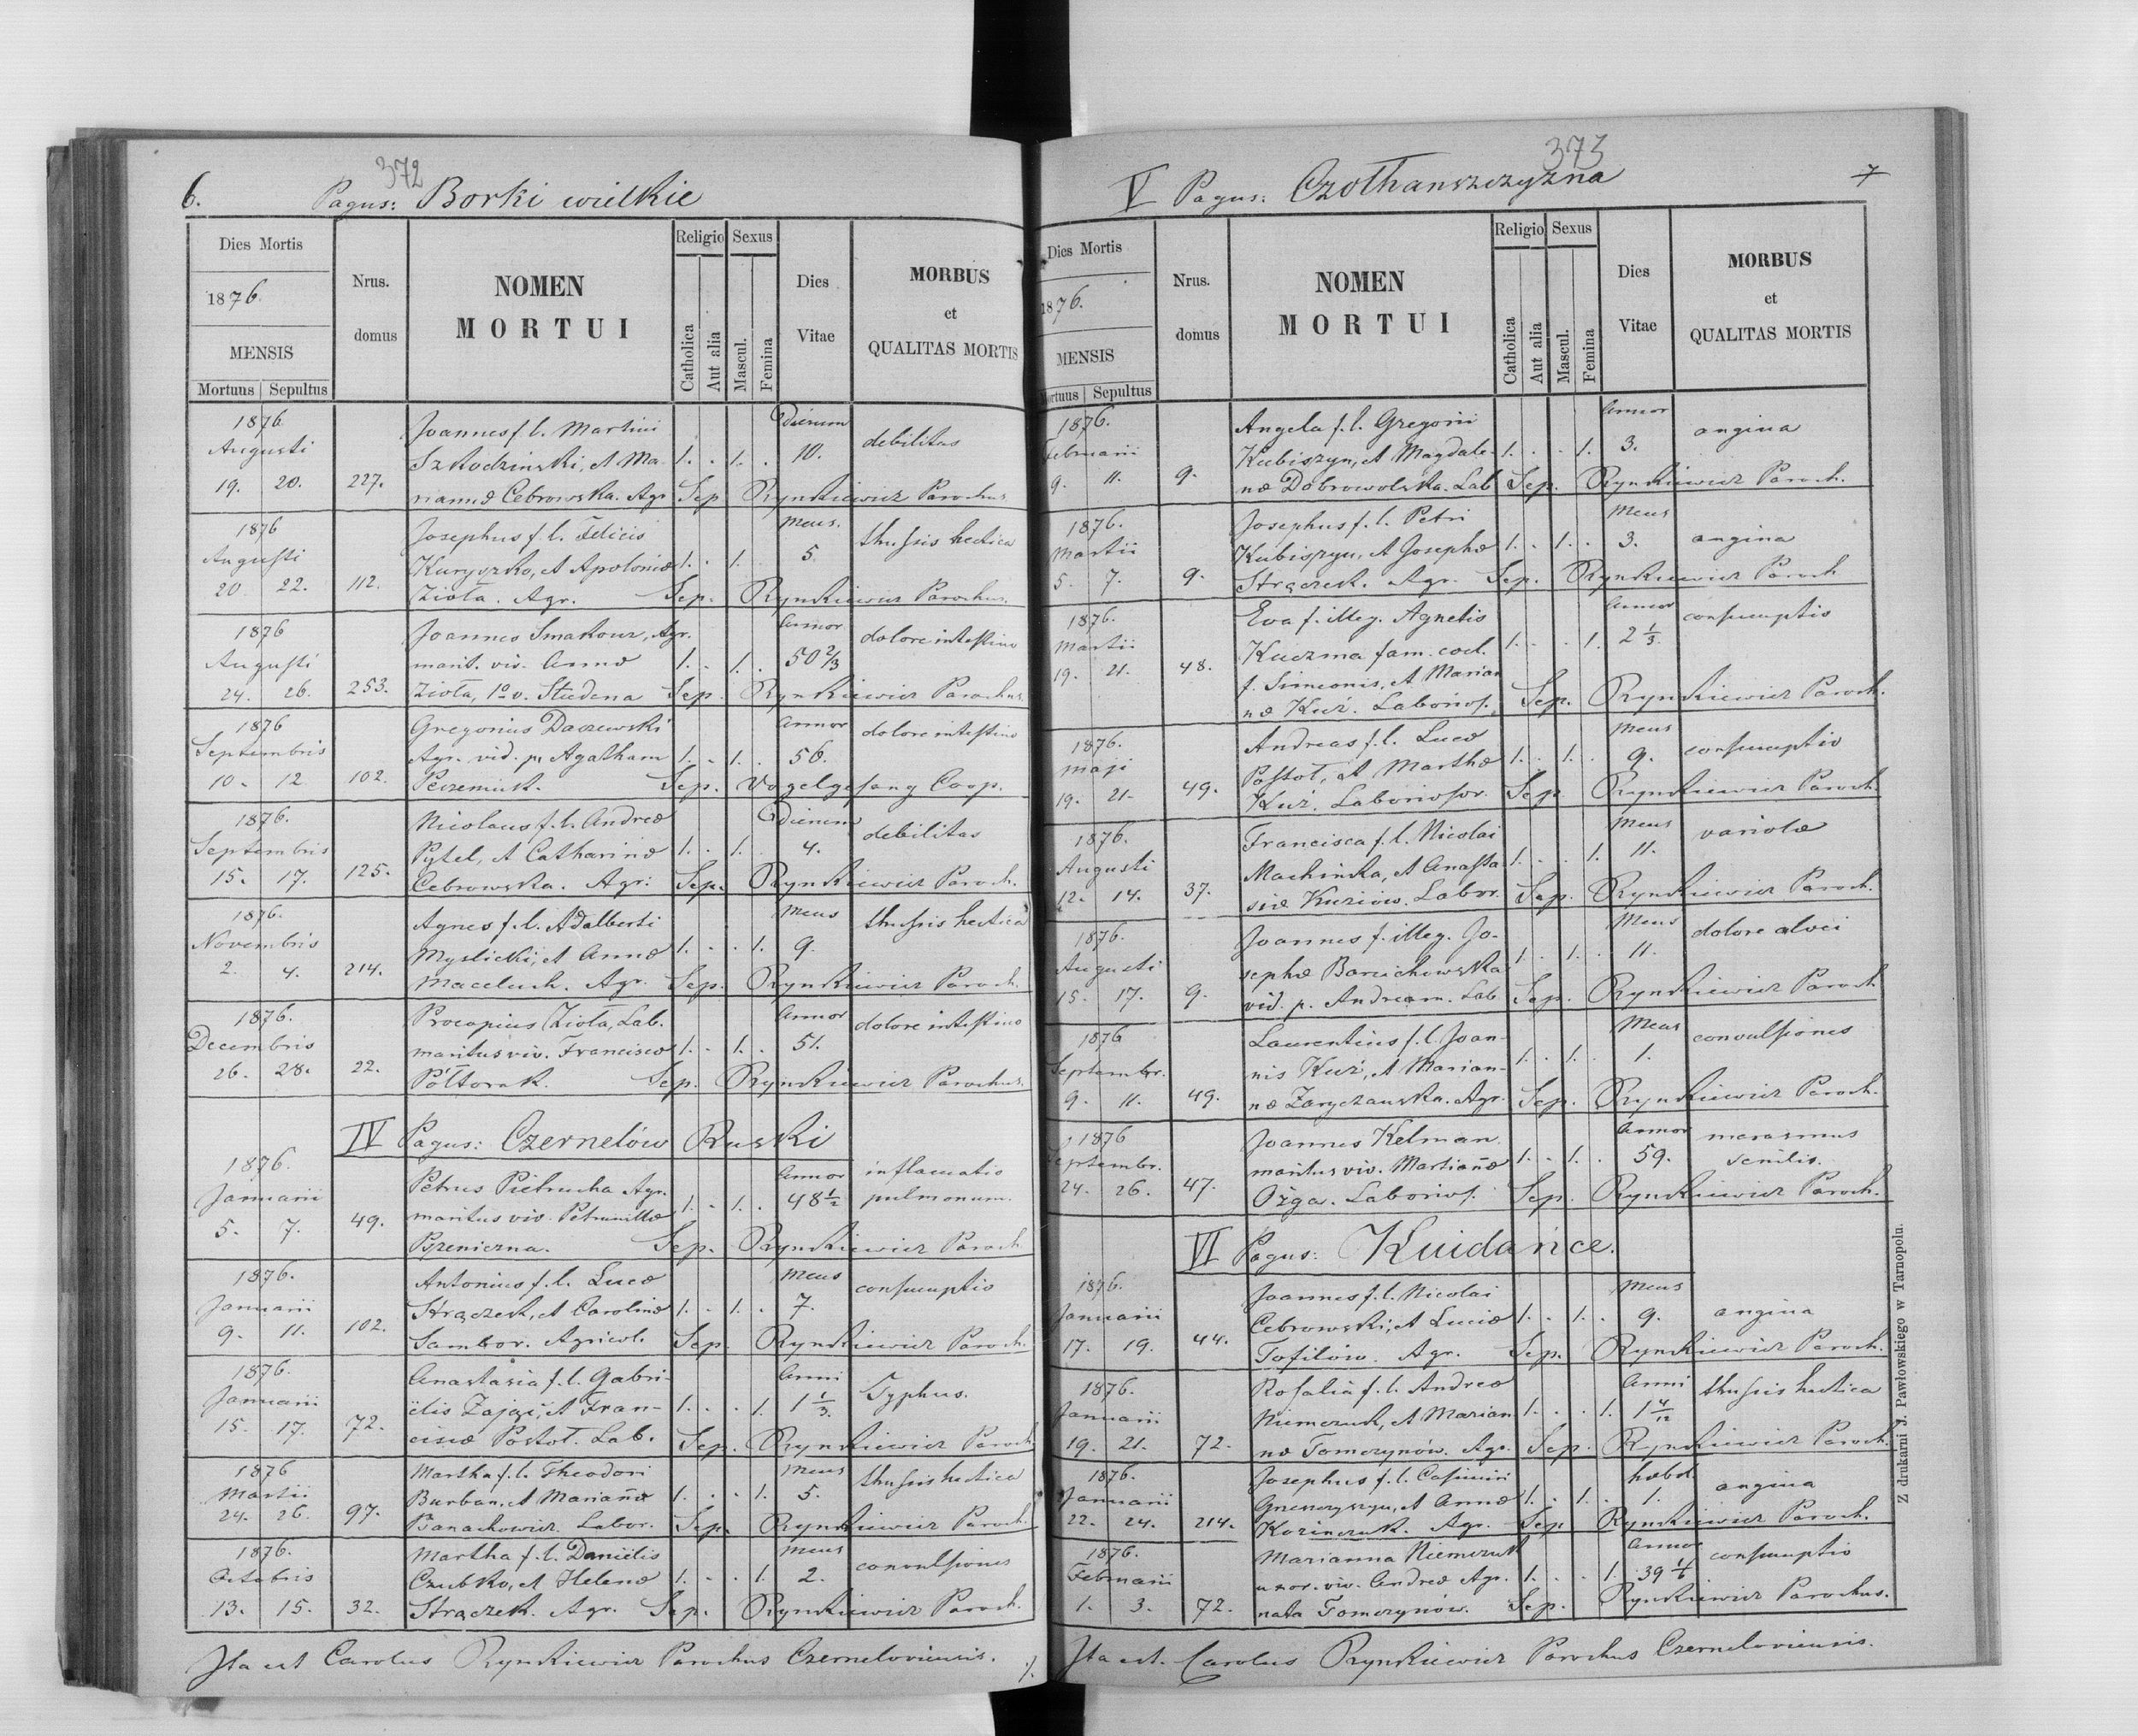 372
6. Pagus: Borki wielkie
Dies Mortis
1876.
MENSIS
Mortuus Sepultus
Nrus. domus
NOMEN
MORTUI
Religio
Catholica
Aut alia
Sexus
Mascul.
Femina
Dies
Vitae
MORBUS
et
QUALITAS MORTIS
1876 Joannes f. l. Martini Dierum
Augusti Szkodzinski, et Ma- 1. . 1. . 10. debilitas
19. 20. 227. riannæ Cebrowska. Agr Sep Rynkiewicz Parochus.
1876 Josephus f. l. Felicis Mens. thussis hectica
Augusti Kuryszko, et Apoloniæ 1. . 1. 5
20 22. 112. Zioła. Agr. Sep. Rynkiewicz Parochus.
1876 Joannes Smakouz, Agr. Annor dolore intestino
Augusti marit. viv. Annæ 1. . 1. . 50 2/3
24. 26. 253. Zioła, 1º v. Studena Sep. Rynkiewicz Parochus
1876 Gregorius Daszewski Annor dolore intestino
Septembris Agr. vid. p. Agatham 1. . 1. . 56.
10. 12 102. Sep. Vogelgesang Coop.
1876. Nicolaus f. l. Andreæ Dierum debilitas
Septembris Pytel, et Catharinæ 1. . 1. 4.
15. 17. 125. Cebrowska. Agr. Sep. Rynkiewicz Paroch.
1876. Agnes f. l. Adalberti Mens thussis hectica
Novembris Myslicki, et Annæ 1. . . 1. 9.
2. 4. 214. Maceluch. Agr. Sep. Rynkiewicz Paroch.
1876. Procopius Zioła, Lab. Annor dolore intestino
Decembris maritus viv. Franciscæ 1. . 1. . 51.
26. 28. 22. Półtorak. Sep. Rynkiewicz Parochus.
IV Pagus: Czernelów Ruski
1876. Petrus Pietrucha Agr. Annor inflamatio
Januarii maritus viv. Petrunillæ 1. . 1. . 48 1/2 pulmonum.
5. 7. 49. Pszeniczna. Sep. Rynkiewicz Paroch
1876. Antonius f. l. Lucæ Mens consumptio
Januarii Strączek, et Carolinæ 1. . 1. . 7.
9. 11. 102. Sambor. Agricol. Sep. Rynkiewicz Paroch.
1876. Anastasia f. l. Gabri- Anni Typhus.
Januarii ëlis Zając, et Fran- 1. . . 1. 1 1/3.
15. 17. 72. ciscæ Postoł. Lab. Sep. Rynkiewicz Paroch
1876 Martha f. l. Theodori Mens thussis hectica
Martii Burban, et Mariañæ 1. . . 1. 5.
24. 26. 97. Banachowicz. Labor. Sep. Rynkiewicz Paroch.
1876. Martha f. l. Daniëlis Mens convulsiones
Octobris Czubko, et Helenæ 1. . . 1. 2.
13. 15. 32. Strączek. Agr. Sep. Rynkiewicz Paroch.
Ita est Carolus Rynkiewicz Parochus Czerneloviensis. ./.
373
V Pagus: Czołhanszczyzna 7
Dies Mortis
1876.
MENSIS
Mortuus Sepultus
Nrus. domus
NOMEN
MORTUI
Religio
Catholica
Aut alia
Sexus
Mascul.
Femina
Dies
Vitae
MORBUS
et
QUALITAS MORTIS
1876. Angela f. l. Gregorii Annor angina
Februarii Kubiszyn, et Magdale- 1. . . 1. 3.
9. 11. 9. næ Dobrowolska. Lab Sep. Rynkiewicz Paroch.
1876. Josephus f. l. Petri Mens angina
Martii Kubiszyn, et Josephæ 1. . 1. . 3.
5. 7. 9. Strączek. Agr. Sep. Rynkiewicz Paroch
1876. Eva f. illeg. Agnetis Annor consumptio
Martii Kuczma fam. coel. 1. . . 1. 2 1/3.
19. 21. 48. f. Simeonis, et Marian
næ Kuź. Laborios. Sep. Rynkiewicz Paroch.
1876. Andreas f. l. Lucæ Mens consumptio
Maji Postoł, et Marthæ 1. . 1. . 9.
19. 21. 49. Kuź. Laboriosor. Sep Rynkiewicz Paroch.
1876. Francisca f. l. Nicolai Mens variolæ
Augusti Machinka, et Anasta- 1. . . 1. 11.
12. 14. 37. siæ Kuziów. Labor. Sep. Rynkiewicz Paroch.
1876. Joannes f. illeg. Jo- Mens dolore alvei
Augusti sephæ 1. . 1. . 11.
15. 17. 9. vid. p. Andream. Lab Sep. Rynkiewicz Paroch.
1876 Laurentius f. l. Joan- Mens convulsiones
Septembr. nis Kuź, et Marian- 1. . 1. . 1.
9. 11. 49. næ Zaryczanska. Agr. Sep. Rynkiewicz Paroch.
1876 Joannes Kelman Annor marasmus
Septembr. maritus viv. Martiañæ 1. . 1. . 59. senilis.
24. 26. 47. Ożga. Laborios. Sep. Rynkiewicz Paroch.
VI Pagus: Kuidańce.
1876. Joannes f. l. Nicolai Mens
Januarii Cebrowski, et Luciæ 1. . 1. . 9. angina
17. 19. 44. Tofilów. Agr. Sep. Rynkiewicz Paroch.
1876. Rosalia f. l. Andreæ Anni thussis hectica
Januarii Niemczuk, et Marian 1. . . 1. 1 4/12
19. 21. 72. næ Tomczynów. Agr. Sep. Rynkiewicz Paroch.
1876. Josephus f. l. Casimiri hebd.
Januarii et Annæ 1. . 1. . 1. angina
22. 24. 214. Kozinczuk. Agr. Sep Rynkiewicz Paroch.
1876. Marianna Niemczuk Annor consumptio
Februarii uxor. viv. Andreæ Agr. 1. . . 1. 39 1/6
1. 3. 72. nata Tomczynów. Sep. Rynkiewicz Parochus.
Ita est. Carolus Rynkiewicz Parochus Czerneloviensis.
Z drukarni J. Pawłowskiego w Tarnopolu.